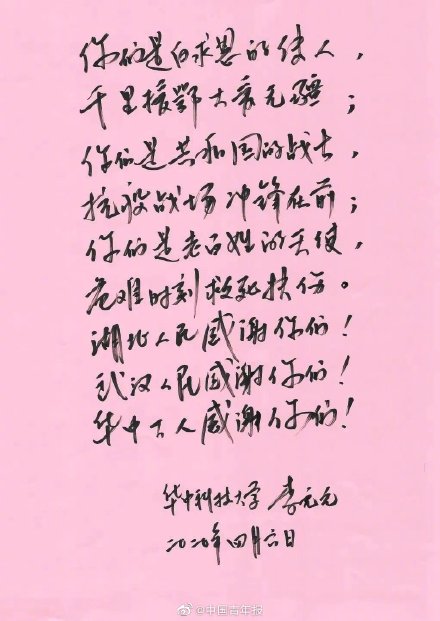 你们是白求恩的使人，
千里援鄂大爱无疆；
你们是共和国的战士，
抗疫战场冲锋在前；
你们是老百姓的天使，
危难时刻救死扶伤。
湖北人民感谢你们！
武汉人民感谢你们！
华中大人感谢你们！
华中科技大学 李元元
二〇二〇年四月六日
@中国青年报